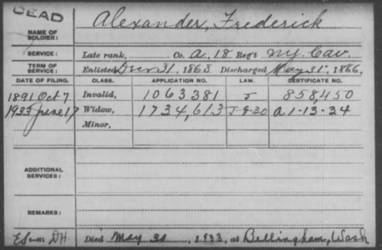 DEAD
NAME OF SOLDIER: Alexander, Frederick
SERVICE: Late rank, Co. A, 18 Reg't N.Y. Cav.
TERM OF SERVICE: Enlisted Dec 31, 1863 Discharged May 31, 1866.
DATE OF FILING. CLASS. APPLICATION NO. LAW. CERTIFICATE NO.
1891 Oct 7 Invalid, 1063381 858,450
1933 June 17 Widow, 1734,613 A 1-13-34
Minor,
ADDITIONAL SERVICES:
REMARKS:
Died May 30, 1933, at Bellingham, Wash